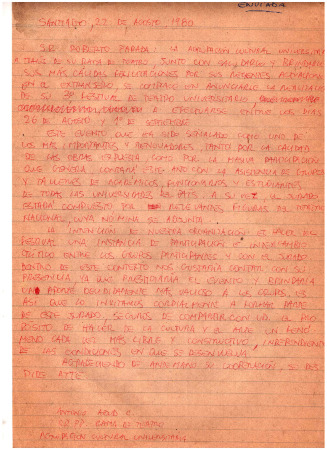 ENVIADA
SANTIAGO, 22 DE AGOSTO 1980
SR. ROBERTO PARADA: LA AGRUPACION CULTURAL UNIVERSITARIA
A TRAVES DE SU RAMA DE TEATRO, JUNTO CON SALUDARLO Y
SUS MAS CALIDAS FELICITACIONES POR SUS RECIENTES
EN EL EXTRANJERO, SE COMPLACE EN ANUNCIARLE LA REALIZACION
DE SU 3er FESTIVAL DE TEATRO UNIVERSITARIO
A EFECTUARSE ENTRE LOS DIAS
26 DE AGOSTO Y 1° DE SEPTIEMBRE
ESTE EVENTO QUE HA SIDO SEÑALADO COMO UNO DE
LOS MAS IMPORTANTES Y RENOVADORES, TANTO POR LA CALIDAD
DE LAS OBRAS EXPUESTAS, COMO POR LA MASIVA PARTICIPACION
QUE GENERA, CONTARA ESTE AÑO CON LA ASISTENCIA DE GRUPOS
Y TALLERES DE ACADEMICOS, FUNCIONARIOS Y ESTUDIANTES
DE TODAS LAS UNIVERSIDADES DEL PAIS. A SU VEZ, EL JURADO
ESTARA COMPUESTO POR RELEVANTES FIGURAS DEL TEATRO
NACIONAL, CUYA NOMINA SE ADJUNTA.
LA INTENCION DE NUESTRA ORGANIZACION ES HACER DEL
FESTIVAL UNA INSTANCIA DE PARTICIPACION E INTERCAMBIO
CRITICO ENTRE LOS GRUPOS PARTICIPANTES Y CON EL JURADO
DENTRO DE ESTE CONTEXTO NOS GUSTARIA CONTAR CON SU
PRESENCIA, YA QUE PRESTIGIARIA EL EVENTO Y BRINDARIA
UN APORTE DECIDIDAMENTE VALIOSO A LOS GRUPOS. ES
ASI QUE LO INVITAMOS CORDIALMENTE A FORMAR PARTE
DE ESTE JURADO, SEGUROS DE COMPARTIR CON UD. EL PRO
POSITO DE HACER DE LA CULTURA Y EL ARTE UN FENO
MENO CADA VEZ MAS LIBRE Y CONSTRUCTIVO, INDEPENDIENTE
DE LAS CONDICIONES EN QUE SE DESENVUELVA
AGRADECIENDO DE ANTEMANO SU COOPERACION, SE DES
PIDE ATTE
RAMA DE TEATRO
AGRUPACION CULTURAL UNIVERSITARIA